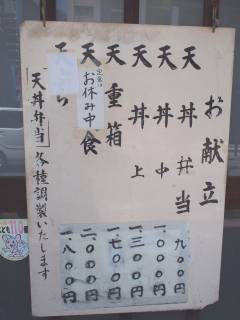 お献立
天丼弁当
天丼中
天丼上
天重箱
天
食
定食は
お休み中
ちらし
「天丼弁当」各種調製いたします
九〇〇円
一、〇〇〇円
一、三〇〇円
一、七〇〇円
二、〇〇〇円
一、八〇〇円
こども110番